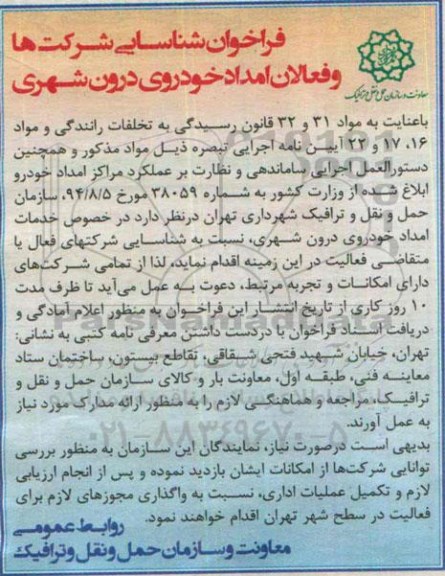 فراخوان شناسایی شرکت ها
و فعالان امداد خودروی درون شهری
معاونت و سازمان حمل و نقل و ترافیک
باعنایت به مواد ۳۱ و ۳۲ قانون رسیدگی به تخلفات رانندگی و مواد
۱۶، ۱۷ و ۲۲ آیین نامه اجرایی تبصره ذیل مواد مذکور و همچنین
دستورالعمل اجرایی ساماندهی و نظارت بر عملکرد مراکز امداد خودرو
ابلاغ شده از وزارت کشور به شماره ۳۸۰۵۹ مورخ ۹۴/۸/۵، سازمان
حمل و نقل و ترافیک شهرداری تهران درنظر دارد در خصوص خدمات
امداد خودروی درون شهری، نسبت به شناسایی شرکتهای فعال یا
متقاضی فعالیت در این زمینه اقدام نماید، لذا از تمامی شرکت‌های
دارای امکانات و تجربه مرتبط، دعوت به عمل می‌آید تا ظرف مدت
۱۰ روز کاری از تاریخ انتشار این فراخوان به منظور اعلام آمادگی و
دریافت اسناد فراخوان با دردست داشتن معرفی نامه کتبی به نشانی:
تهران، خیابان شهید فتحی شقاقی، تقاطع بیستون، ساختمان ستاد
معاینه فنی، طبقه اول، معاونت بار و کالای سازمان حمل و نقل و
ترافیک، مراجعه و هماهنگی لازم را به منظور ارائه مدارک مورد نیاز
به عمل آورند.
۰۲۱-۸۸۳۴۹۶۷۰-۵
بدیهی است درصورت نیاز، نمایندگان این سازمان به منظور بررسی
توانایی شرکت‌ها از امکانات ایشان بازدید نموده و پس از انجام ارزیابی
لازم و تکمیل عملیات اداری، نسبت به واگذاری مجوزهای لازم برای
فعالیت در سطح شهر تهران اقدام خواهند نمود.
روابط عمومی
معاونت و سازمان حمل و نقل و ترافیک